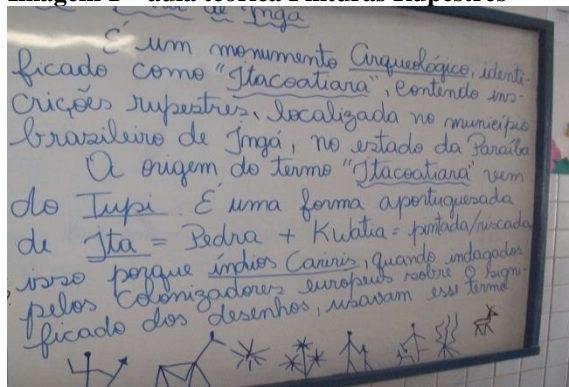 de Ingá
É um monumento Arqueológico, identi-
ficado como "Itacoatiara", contendo ins-
crições rupestres, localizada no município
brasileiro de Ingá, no estado da Paraíba
A origem do termo "Itacoatiara" vem
do Tupi. É uma forma aportuguesada
de Ita = Pedra + Kwatia = pintada/riscada,
isso porque índios Cariris, quando indagados
pelos Colonizadores europeus sobre o signi-
ficado dos desenhos, usavam esse termo